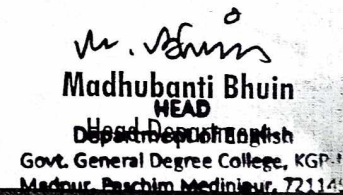 M. Bhuin
Madhubanti Bhuin
HEAD
Department of English
Govt. General Degree College, KGP-
Madpur, Paschim Medinipur, 72114